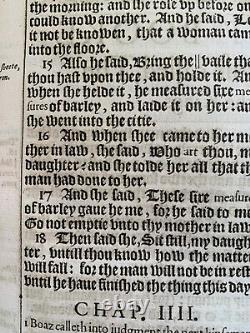 the morning: and she rose vp before on
could know another. And he said, Le
it not be knowen, that a woman cam
into the floore.
15 Also he said, Bring the || vaile tha
hast vpon thee, and holde it. And
when she helde it, he measured sixe mea
sures of barley, and laide it on her: and
she went into the citie.
16 And when shee came to her mo
ther in law, she said, Who art thou, m
daughter? and she tolde her all that th
man had done to her.
17 And she said, These sixe measure
of barley gaue he me, for he said to m
Go not emptie vnto thy mother in law
18 Then said she, Sit still, my daug
ter, vntill thou know how the matter
will fall: for the man will not be in re
vntil he haue finished the thing this da
CHAP. IIII.
1 Boaz calleth into iudgment the next kinsman